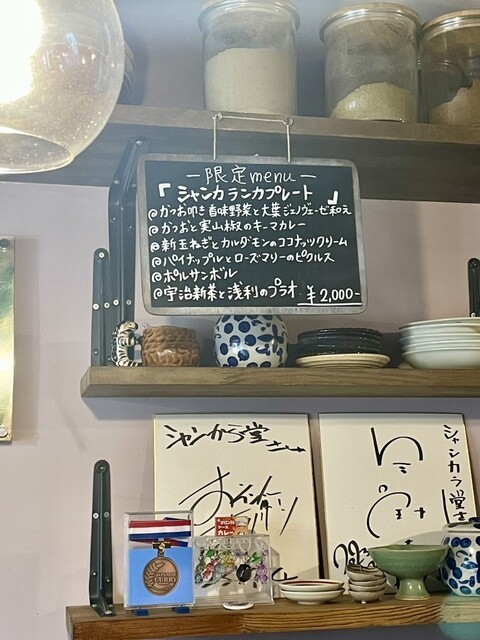 ー限定menuー
『シャンカランカプレート』
@かつお叩き 香味野菜と大葉ジェノヴェーゼ和え
@かつおと実山椒のキーマカレー
@新玉ねぎとカルダモンのココナッツクリーム
@パイナップルとローズマリーのピクルス
@ポルサンボル
@宇治新茶と浅利のプラオ ¥2,000-
シャンカラ堂
シャンカラ堂
CURRY
カレー